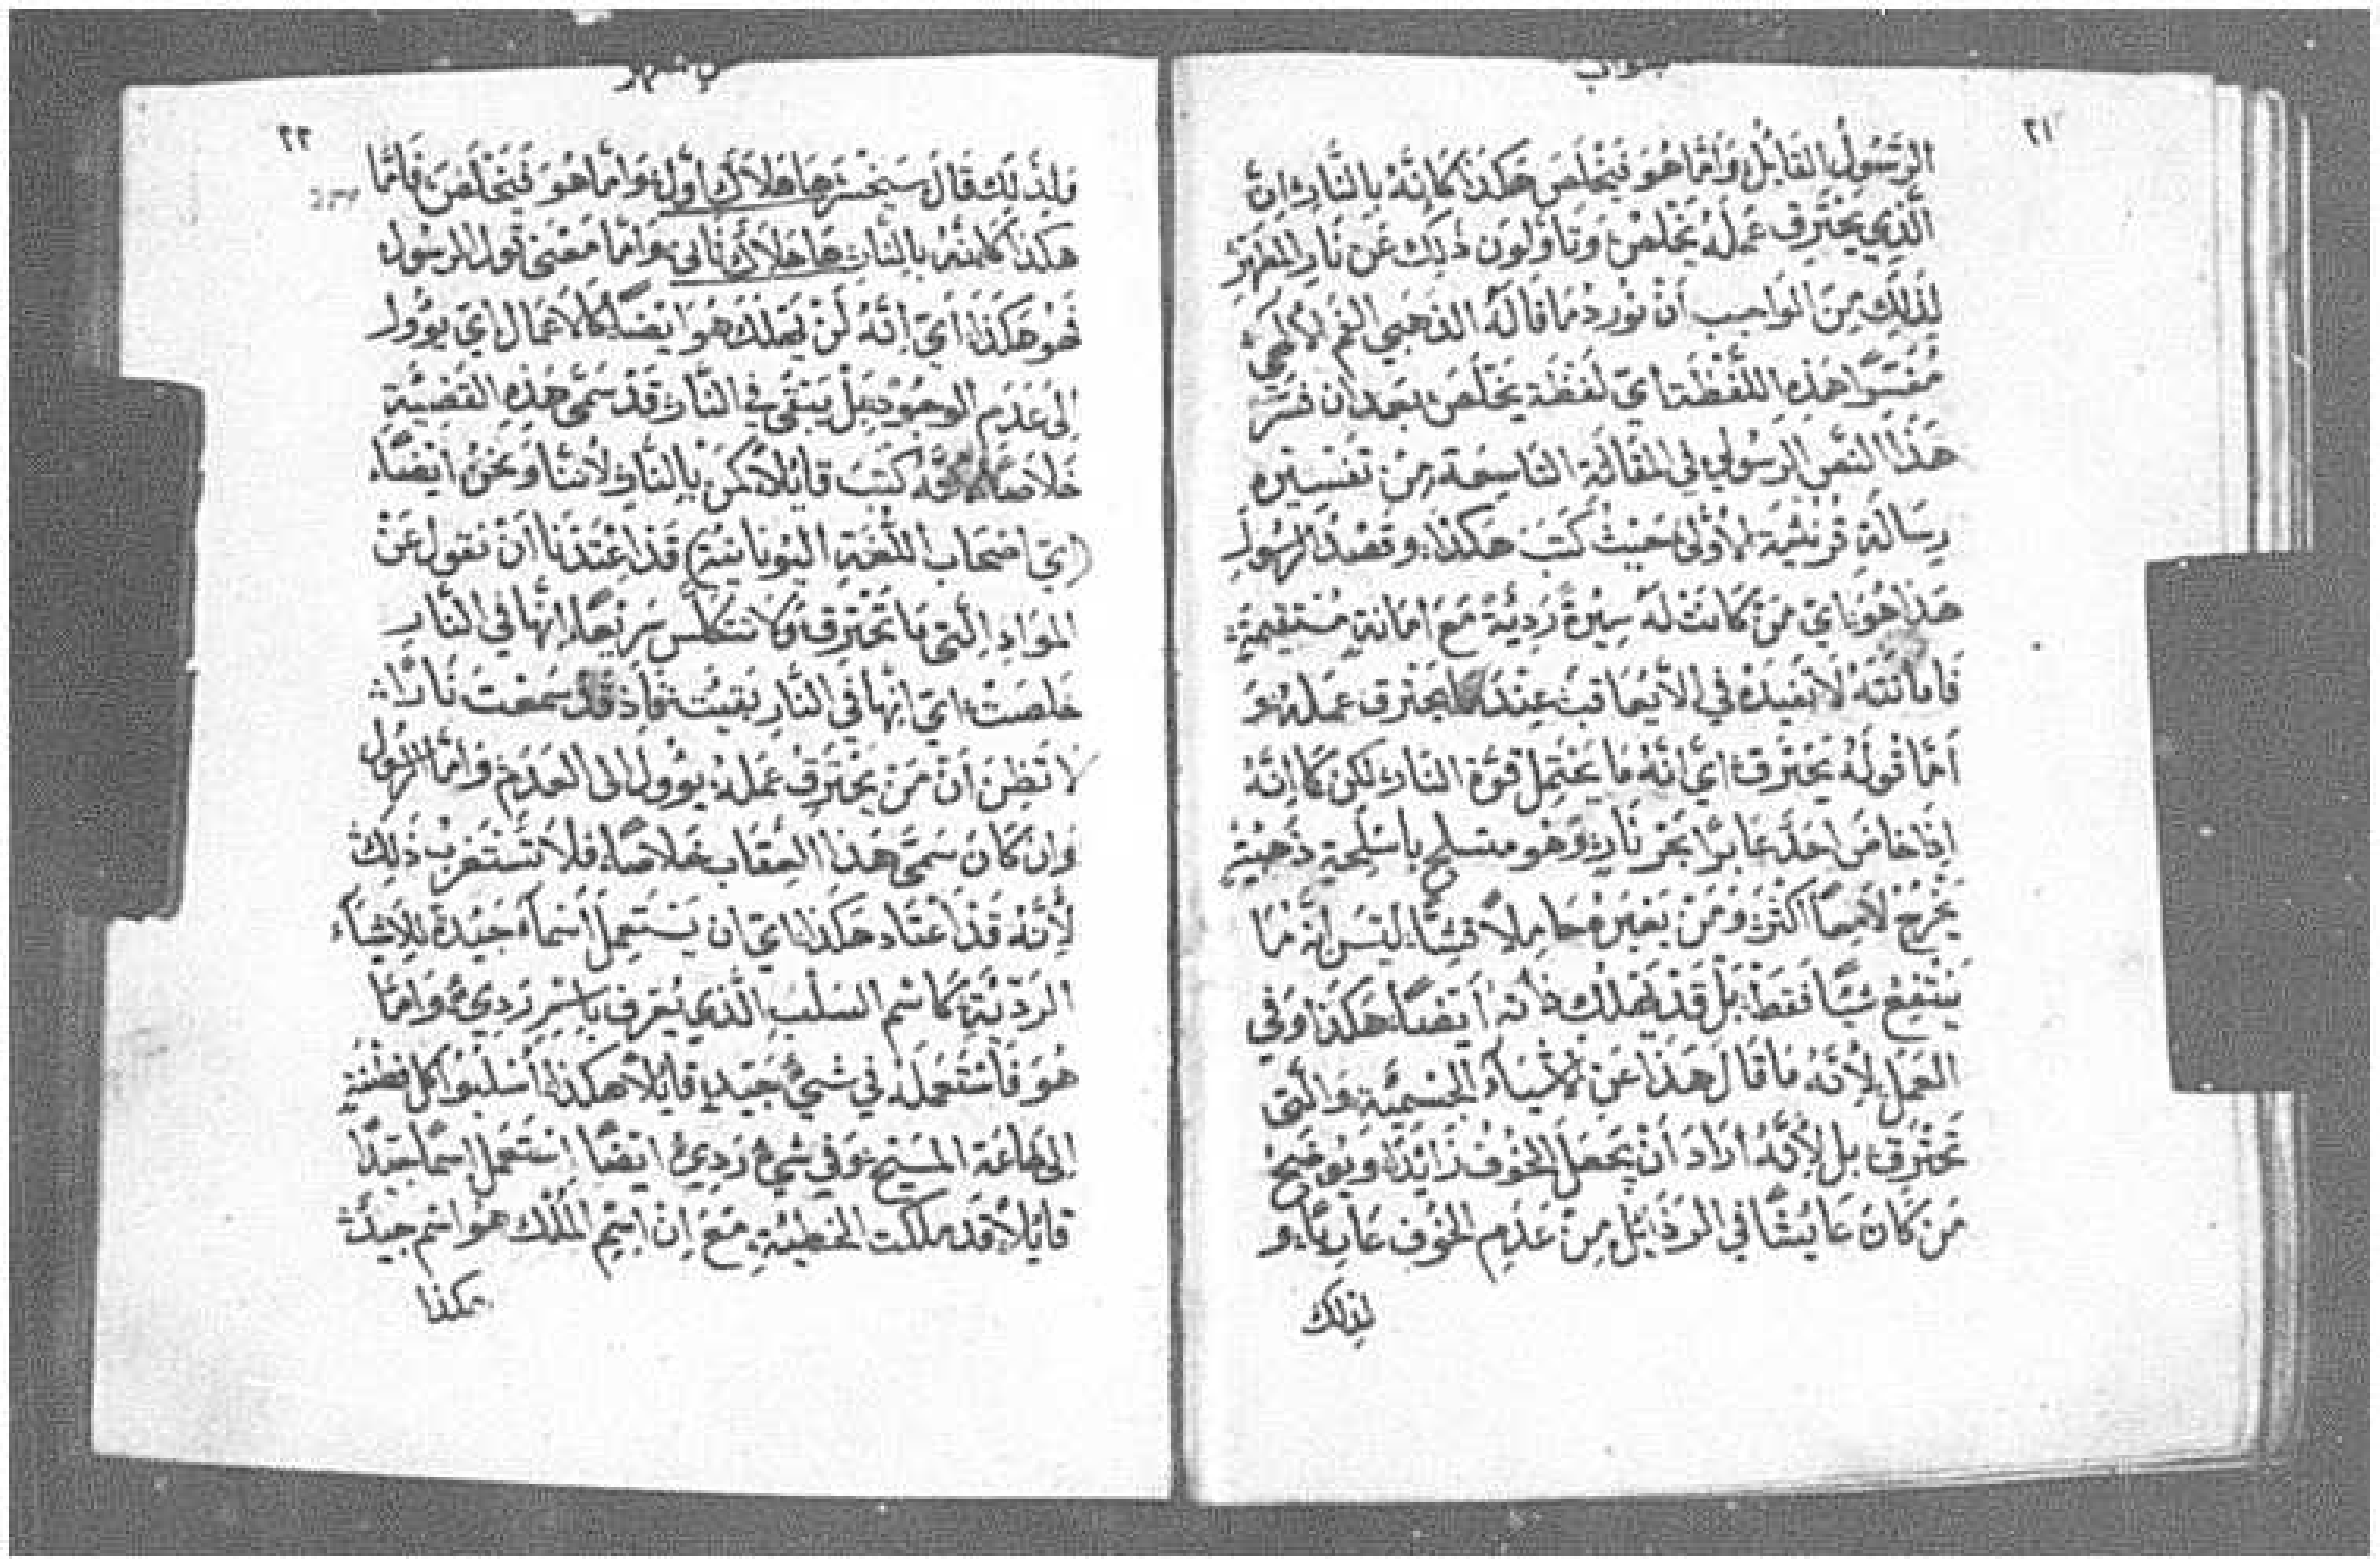 ٢١
الرَسُولُ القَائِل وَأَمَّا هُوَ فَيَخْلَص هَكَذَا كَأنَّهُ بِالنَّارِ انَّ
الَّذِي يَحْتَرِق عَمَلَهُ يَخْلَصْ وَتأولون ذَلِكَ عَن نَارِ المَطْهَرْ
لِذَلِكَ مِنَ الوَاجِب أَنْ نُوْرِدْ مَا قَالَهُ الذَهَبِي الفَم الإلهي
مُفَسِّرًا هَذِهِ اللَّفْظَة أيْ لَفْظَة يَخْلَصْ بعد ان فَسَّرَ
هَذَا النَصّ الرَسُولي في المَقَالَةِ التَاسِعَة مِنْ تَفْسِيْرِهِ
رِسَالَةِ قُرِنْثِيَة الأُوْلى حَيْثُ كَتَبَ هَكَذَا وقَصْدُ الرَسُولِ
هَذَا هُوَ أيْ مَنْ كَانَتْ لَهُ سِيْرَةٌ رَدِيَّة مَعَ امَانَةٍ مُسْتَقِيمَة
فَامَانَتَهُ لَا تُفِيْدَهُ فِي الَّا يُعَاقَب عِنْدَمَا يَحْتَرِق عَمَلَهُ وَ
أمَّا قَولَهُ يَحْتَرِق أيْ انَّهُ مَا يَحْتَمِل قُوَّة النَارِ لكِنْ كَمَا انَّهُ
إذَا خَاضَ احَدٌ عَابِرًا بَحْرَ نَارٍ وَهُو متسلح بِأسْلِحَة ذَهَبِيَّة
يَخْرُجْ لَامِعًا أكْثَرْ وَمَنْ يَعْبَرهُ حَامِلاً قَشًّا لَيْسَ أنَّهُ مَا
يَنْتَفِعْ شَيًّا فَقَطْ بَلْ قَدْ يُهْلِك ذَاتَهُ أيْضًا هَكَذَا وَفِي
العَمَل لِأنَّهُ مَا قَالَ هَذَا عَنِ الأشْيَاءِ الجِسْمِيَّة وَالَّتِي
تَحْتَرِق بل لِأنَّهُ أرَادَ أنْ يَجْعَلَ الخَوْفَ زَائِدًا وَيُوضِحْ
مَن كَانَ عَائِشًا في الرَذَائِلْ مِنْ عَدَمِ الخَوْفِ عَارِيًا و
لِذلك
٢٢
وَلِذَلِكَ قَالَ سَيَخْسَر هَا هَلَاكٌ أَوّل وَأمَّا هُوَ فَيَخْلَصَ فَأمَّا
هَكَذَا كَأنَّهُ بِالنَّارِ هَا هَلَاكٌ ثَانِي وَأمَّا مَعْنى قَول الرسُول
فَهُو هَكَذَا أيْ إنَّهُ لَنْ يَهْلَك هُوَ ايْضًا كَالأعْمَال أيْ يَؤُول
إلى عَدَمِ الوجُود بَلْ يَبْقَى فِي النَّارِ قَدْ سَمَّى هَذِهِ القَضِيَّة
خَلَاصًا كَتَبَ قَائِلاً لَكن بِالنَّارِ لأنَّنَا وَنَحْنُ ايْضًا
(أيْ اصْحَاب اللُّغَةِ اليُونَانِيَّة) قَد اعْتَدْنَا أنْ نَقُولَ عَنْ
المَوَادِ الَّتِي مَا تَحْتَرِق وَلَا تَتَكَلَّس سَرِيْعًا إنَّهَا فِي النَّارِ
خَلَصَتْ أيْ إنَّهَا فِي النَّارِ بَقِيَتْ فَإذْ قَدْ سَمِعْتَ نَارًا
لَا تَظُنّ أنَّ مَنْ يَحْتَرِق عَمَلَهُ يَؤُول إلى العَدَم وَأمَّا الرَسُول
وَإن كَانَ سَمَّى هَذَا العِقَاب خَلَاصًا فَلَا تَسْتَغْرِبْ ذَلِكَ
لأنَّهُ قَدْ اعْتَاد هَكَذَا أيْ ان يَسْتَعْمِل أَسْمَاء جَيِّدَة لِلأشْيَاء
الرَدِيَّة كَاسْم السَلْب الَّذِي يُعرَف بِاسْمٍ رَدِيء وَأمَّا
هُوَ فَاسْتَعْمَلَهُ فِي شَيْءٍ جَيِّد قَائِلاً هَكَذَا أَسْلِبُوا كُل فِطْنَةٍ
إلى طَاعَة المَسِيْح وَفي شيْء رَدِيء ايْضًا إسْتَعْمَل إسْمًا جَيِّدًا
قَائِلاً قَد مَلكَت الخَطِيَّة مَعَ إنَّ اسْم المُلْكِ هُوَ اسْم جَيِّد
هكذا